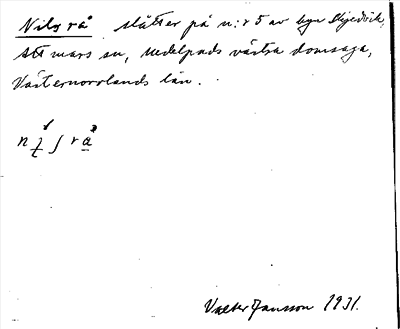 Nilsrå slåtter på n:r 5 av byn Skjedvik,
Attmars sn, Medelpads västra domsaga,
Västernorrlands län.
Valter Jansson 1931.